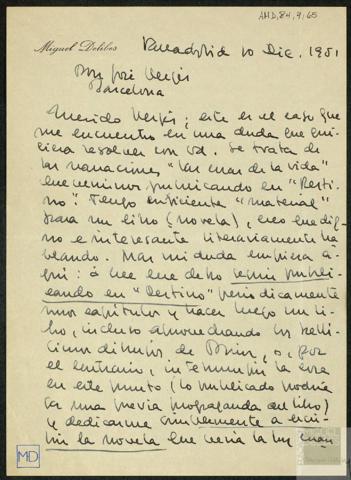 AMD,84,4,65
Miguel Delibes
Valladolid 10 Dic. 1951
Don José Vergés
Barcelona
Querido Vergés; este es el caso que
me encuentro en una duda que qui-
siera resolver con Vd. Se trata de
las narraciones "las cosas de la vida"
que venimos publicando en "Desti-
no". Tengo suficiente "material"
para un libro (novela), creo que dig-
no e interesante literariamente ha-
blando. Mas mi duda empieza a-
quí: ó cree que debo seguir publi-
cando en "Destino" periódicamente
unos capítulos y hacer luego un li-
bro, incluso aprovechando los
dibujos de o, por
el contrario, interrumpir la cosa
en este punto (lo publicado podría
ser una previa propaganda del libro)
y dedicarme simplemente a escri-
bir la novela que vería la luz cuan
MD